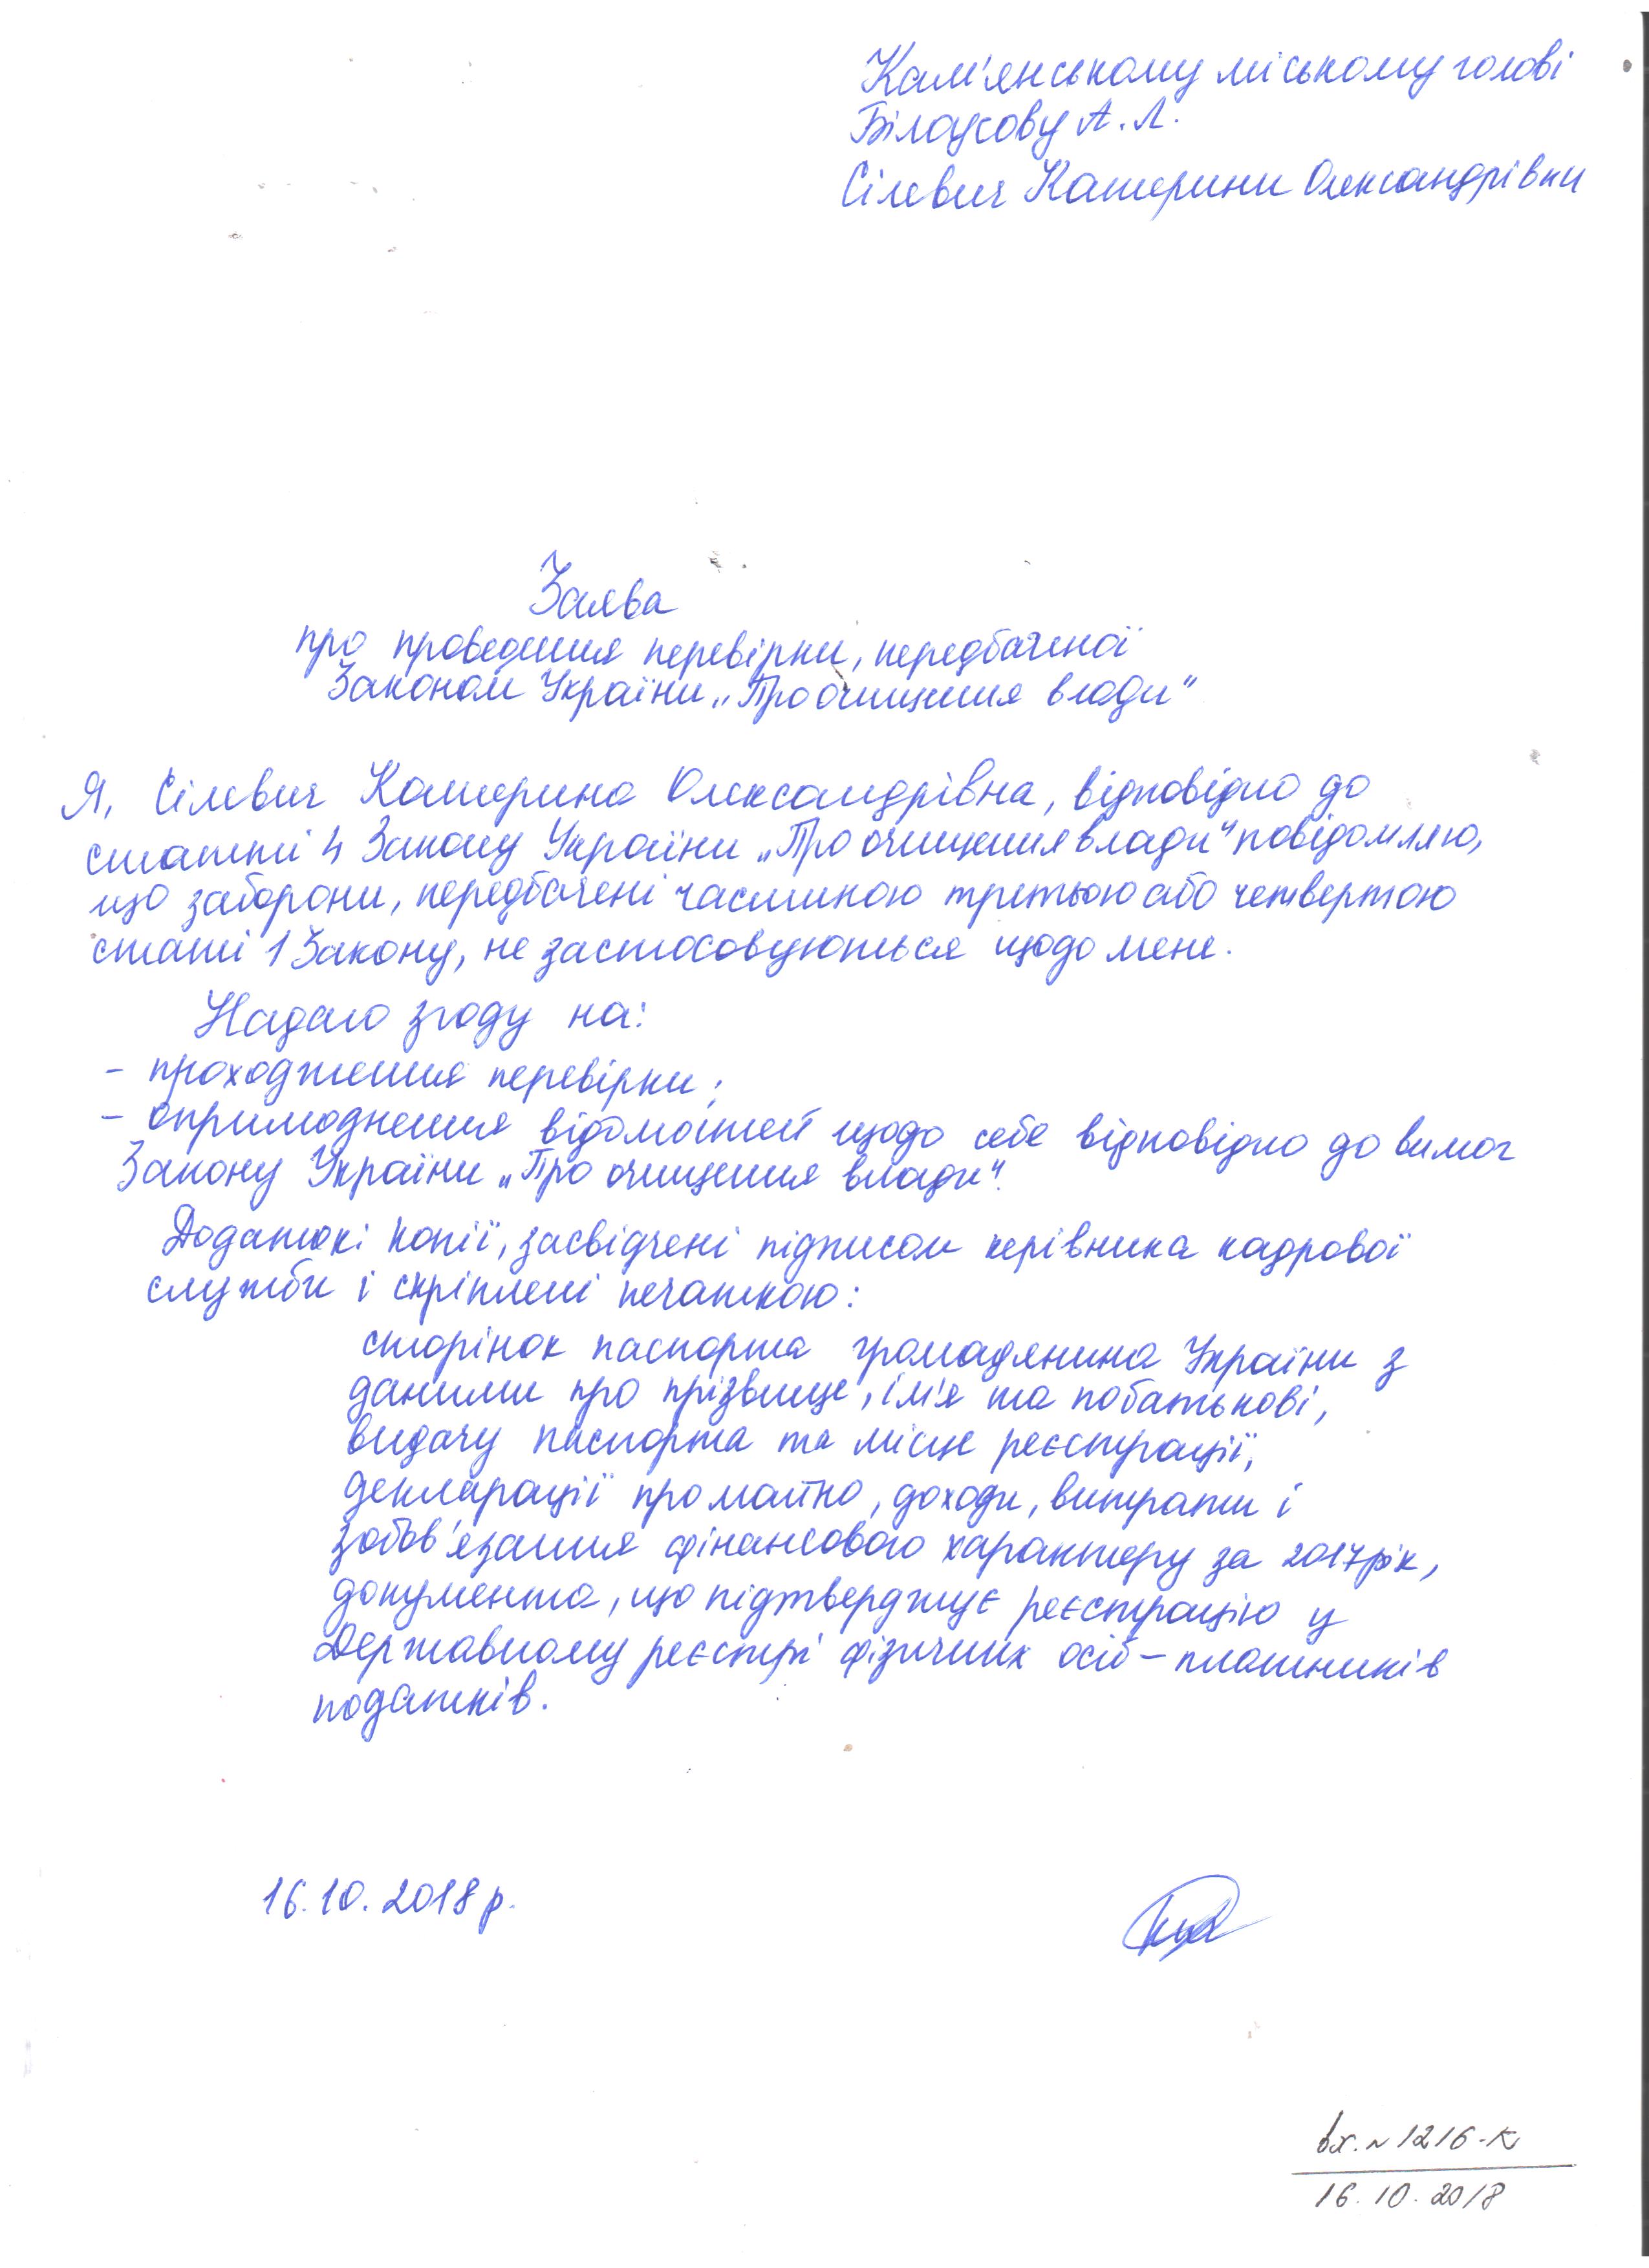 Кам'янському міському голові
Білоусову А. Л.
Сілевич Катерини Олександрівни
Заява
про проведення перевірки, передбаченої
Законом України „Про очищення влади"
Я, Сілевич Катерина Олександрівна, відповідно до
статті 4 Закону України „Про очищення влади" повідомляю,
що заборони, передбачені частиною третьою або четвертою
статі 1 Закону, не застосовуються щодо мене.
Надаю згоду на:
- проходження перевірки;
- оприлюднення відомостей щодо себе відповідно до вимог
Закону України „Про очищення влади".
Додатки: копії, засвідчені підписом керівника кадрової
служби і скріплені печаткою:
сторінок паспорта громадянина України з
даними про прізвище, ім'я та по батькові,
видачу паспорта та місце реєстрації,
декларації про майно, доходи, витрати і
зобов'язання фінансового характеру за 2017 рік,
документа, що підтверджує реєстрацію у
Державному реєстрі фізичних осіб – платників
податків.
16.10.2018 р.
вх. № 1216-К
16.10.2018